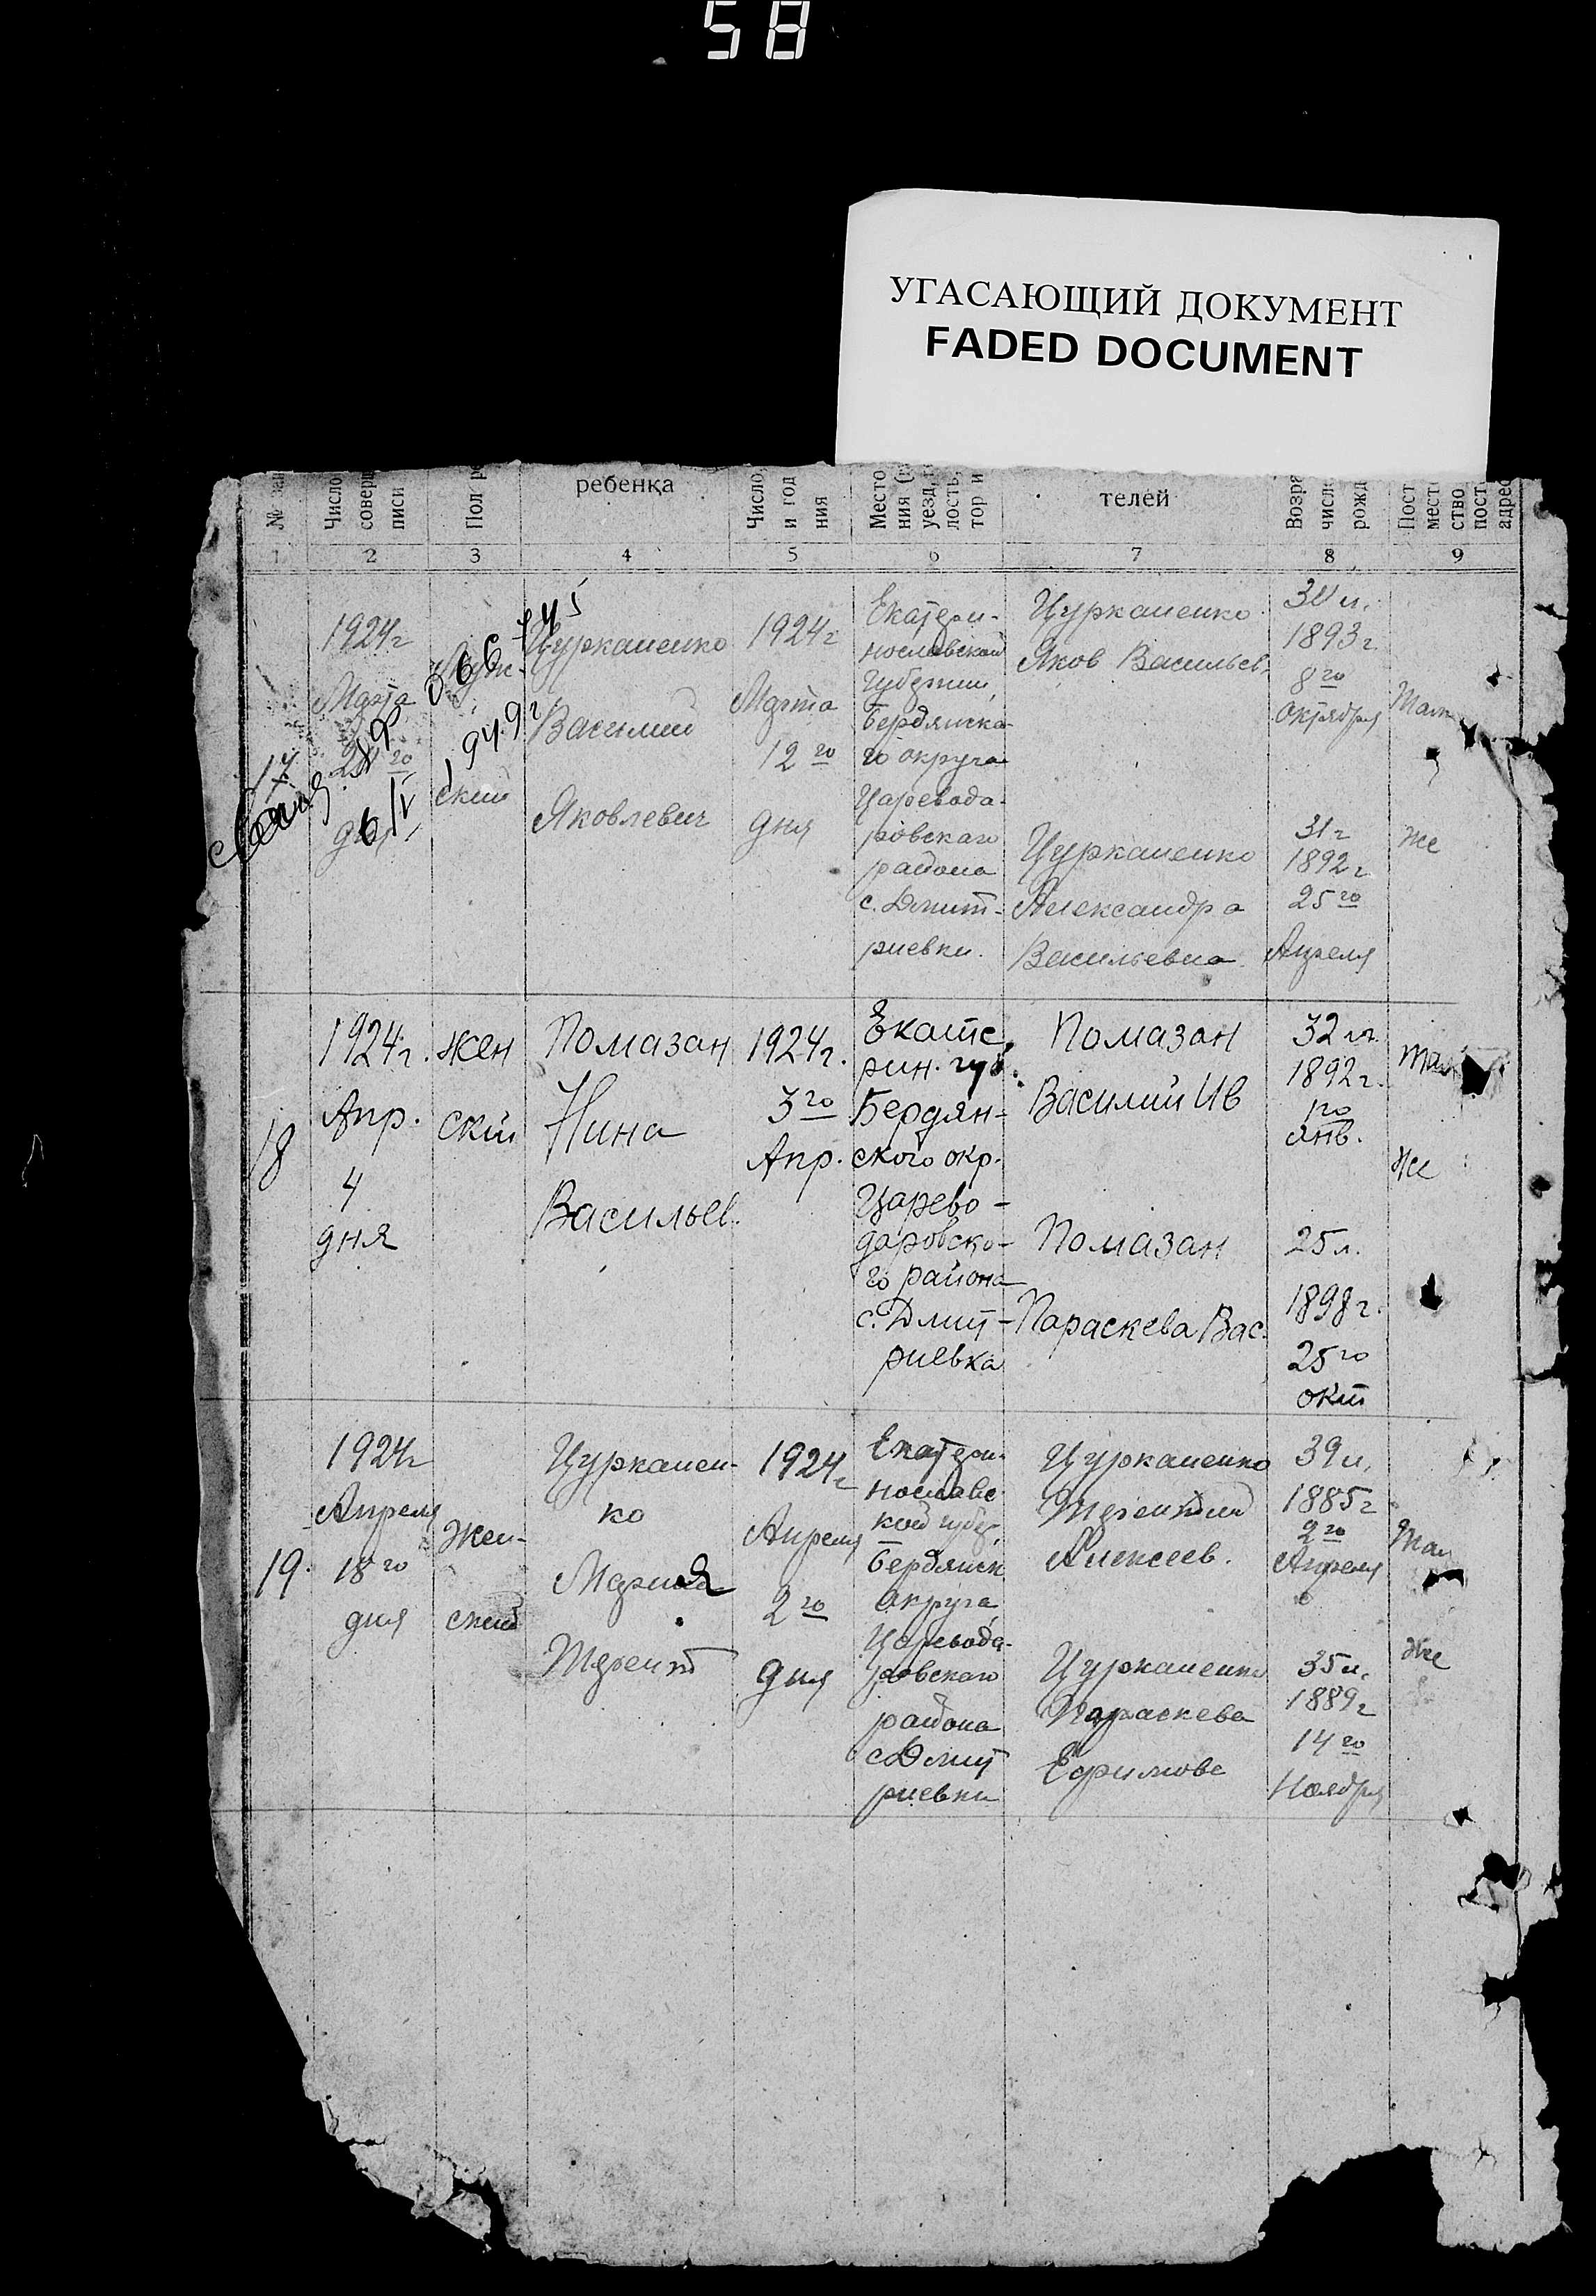 58
УГАСАЮЩИЙ ДОКУМЕНТ
FADED DOCUMENT
Число
совер
писи
Пол
ребенка
Число,
и год
ния
Место
ния
уезд,
лость,
тор и
телей
Возра
число
рожд
Пост
мест
ство
пост
адрес
1 2 3 4 5 6 7 8 9
17
1924г
Марта
дня
Муж-
ский
Цурканенко
Василий
Яковлевич
1924г
Марта
12го
дня
Екатери-
нославской
Губернии,
Бердянска-
го округа
Царевода-
ровскаго
района
с. Дмит-
риевки.
Цурканенко
Яков Васильев.
Цурканенко
Александра
Васильевна
30 л.
1893г
8го
Октября
31г
1892г
25го
Апреля
Там
же
18
1924г.
Апр.
4
дня
жен
ский
Помазан
Нина
Васильев.
1924г.
3го
Апр.
Екате
рин. губ.
Бердян-
ского окр.
Царево-
даровско-
го района
с. Дмит-
риевка
Помазан
Василий Ив
Помазан
Параскева Вас.
32 л.
1892г.
1го
янв.
25л.
1898г.
25го
окт
там
же
19.
1924г
Апреля
18го
дня
Жен-
ский
Цурканен-
ко
Мария
Терент
1924г
Апреля
2го
дня
Екатери-
нославс
кой губер
Бердянск
округа
Царевода-
ровскаго
района
с Дмит
риевки
Цурканенко
Терентий
Алексеев.
Цурканенко
Параскева
Ефимове
39л.
1885г
2го
Апреля
35л.
1889г
14го
Ноября
Там
же